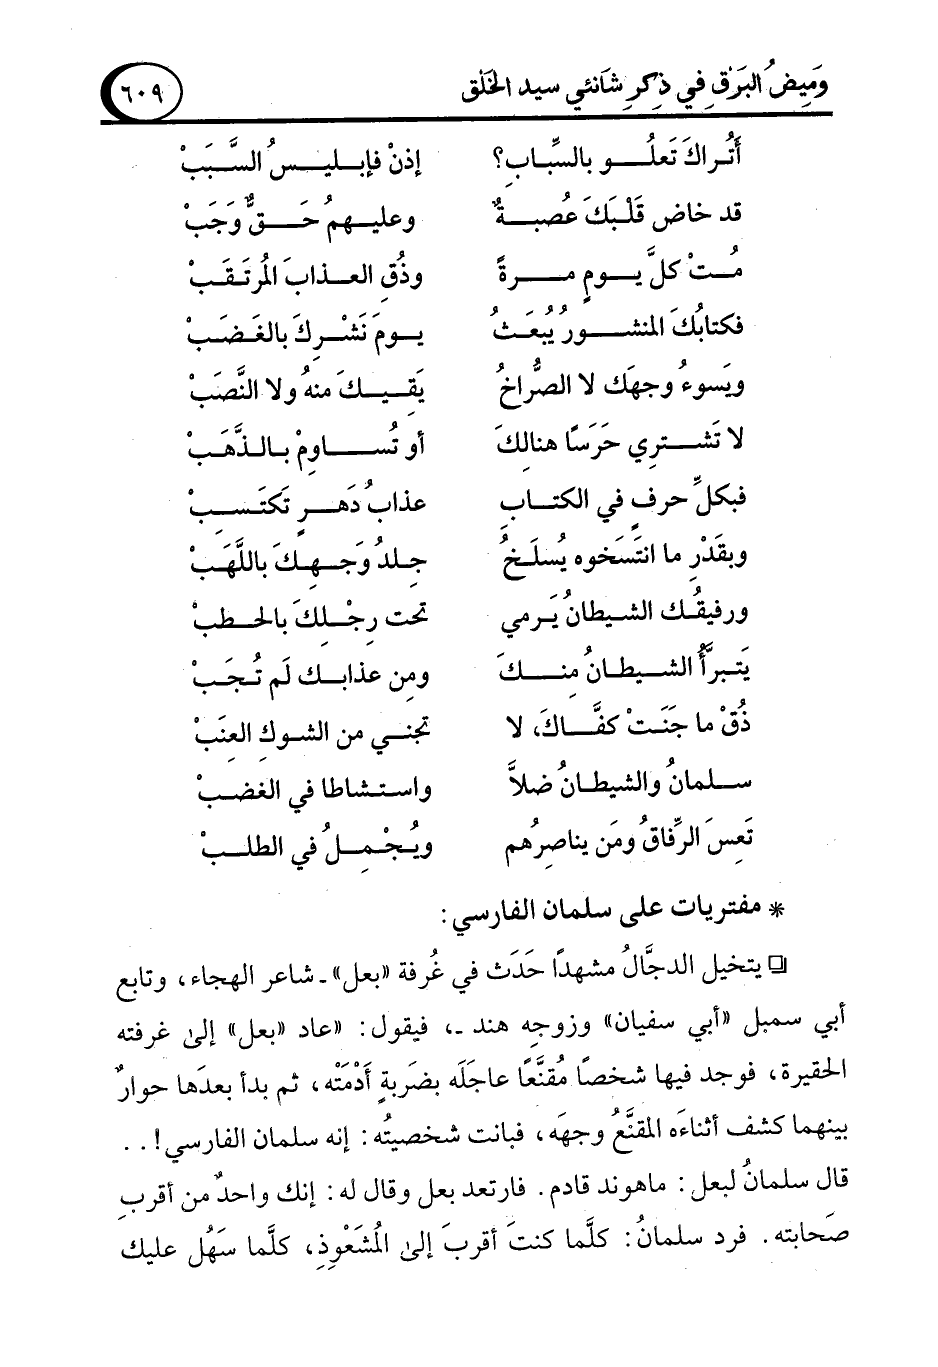 وَمِيضُ البَرْقِ في ذِكرِ شَانئي سيد الخَلْق
٦٠٩
أَتُراكَ تَعلُو بالسِّبابِ؟ إذنْ فإبليسُ السَّبَبْ
قد خاض قَلْبَكَ عُصبةٌ وعليهمُ حَقٌّ وَجَبْ
مُتْ كلَّ يومٍ مرةً وذُقِ العذابَ المُرتَقَبْ
فكتابُكَ المنشورُ يُبعَثُ يومَ نَشْرِكَ بالغَضَبْ
ويَسوءُ وجهَك لا الصُّراخُ يَقيكَ منهُ ولا النَّصَبْ
لا تَشتري حَرَسًا هنالِكَ أو تُساوِمْ بالذَّهَبْ
فبكلِّ حرفٍ في الكتابِ عذابُ دَهرٍ تَكتَسِبْ
وبقَدْرِ ما انتَسَخوه يُسلَخُ جِلدُ وَجهِكَ باللَّهَبْ
ورفيقُك الشيطانُ يَرمي تحت رِجْلِكَ بالحطبْ
يَتبرَّأُ الشيطانُ مِنكَ ومِن عذابِك لَم تُجَبْ
ذُقْ ما جَنَتْ كفَّاكَ، لا تجني مِن الشوكِ العِنَبْ
سلمانُ والشيطانُ ضلاَّ واستشاطا في الغضبْ
تَعِسَ الرِّفاقُ ومَن يناصِرُهم ويُجْمِلُ في الطلبْ
* مفتريات على سلمان الفارسي:
❏ يتخيل الدجَّالُ مشهدًا حَدَث في غُرفة «بعل» - شاعر الهجاء، وتابع
أبي سمبل «أبي سفيان» وزوجِه هند -، فيقول: «عاد «بعل» إلىٰ غرفته
الحقيرة، فوجد فيها شخصًا مُقنَّعًا عاجلَه بضَربةٍ أَدْمَتْه، ثم بدأ بعدَها حوارٌ
بينهما كشف أثناءَه المقنَّعُ وجهَه، فبانت شخصيتُه: إنه سلمان الفارسي! ..
قال سلمانُ لبعل: ماهوند قادم. فارتعد بعل وقال له: إنك واحدٌ من أقربِ
صَحابته. فرد سلمانُ: كلَّما كنتَ أقربَ إلىٰ المُشَعْوِذِ، كلَّما سَهُل عليك